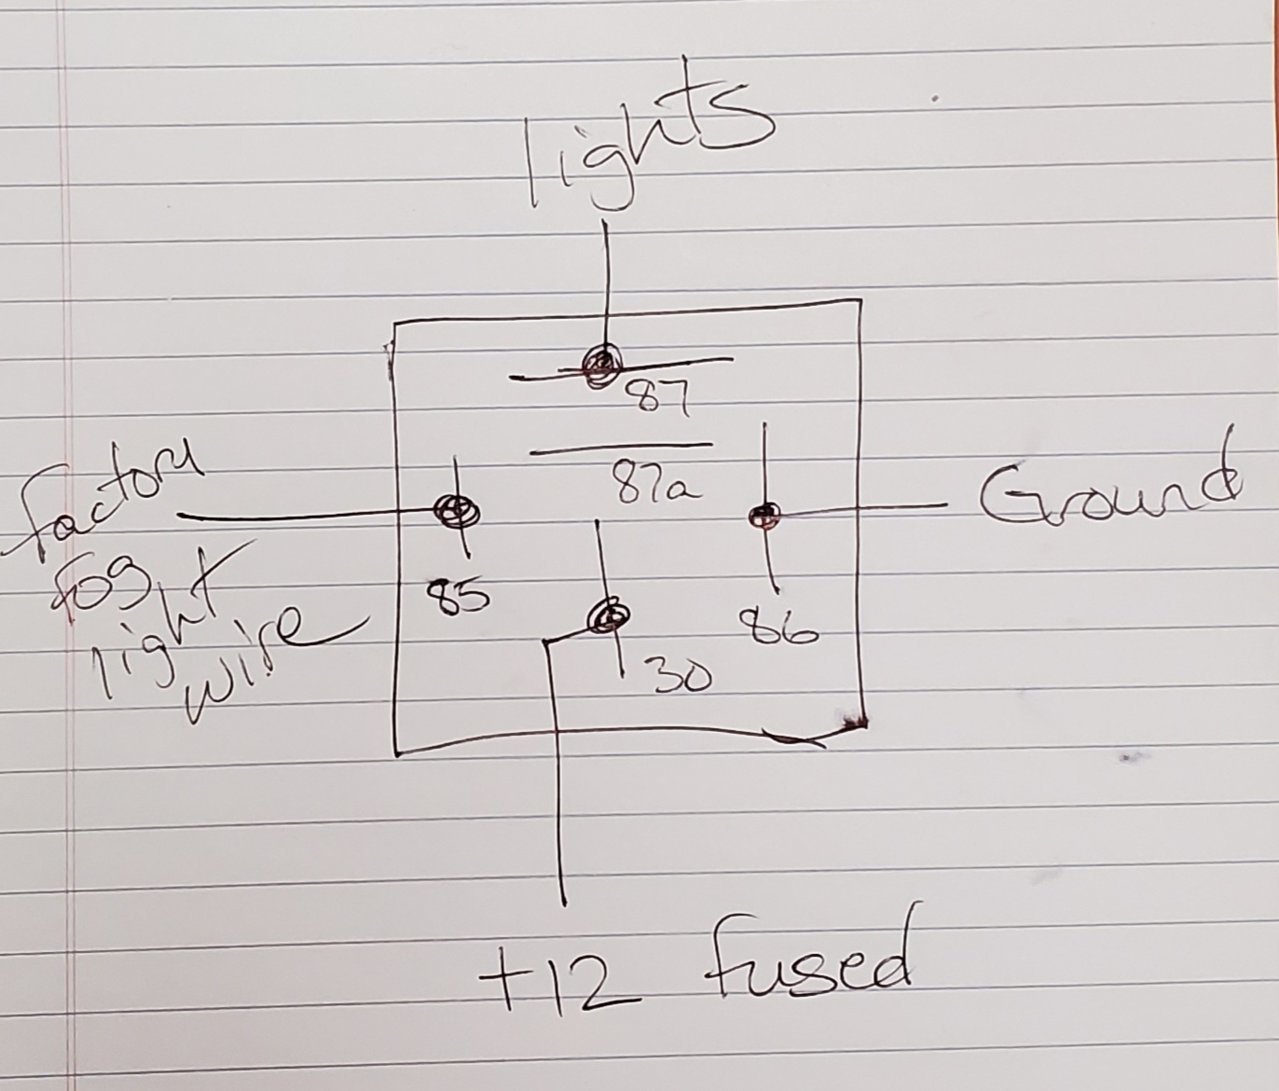 lights
87
87a
factory
fog
light
wire
85
86
Ground
30
+12 fused